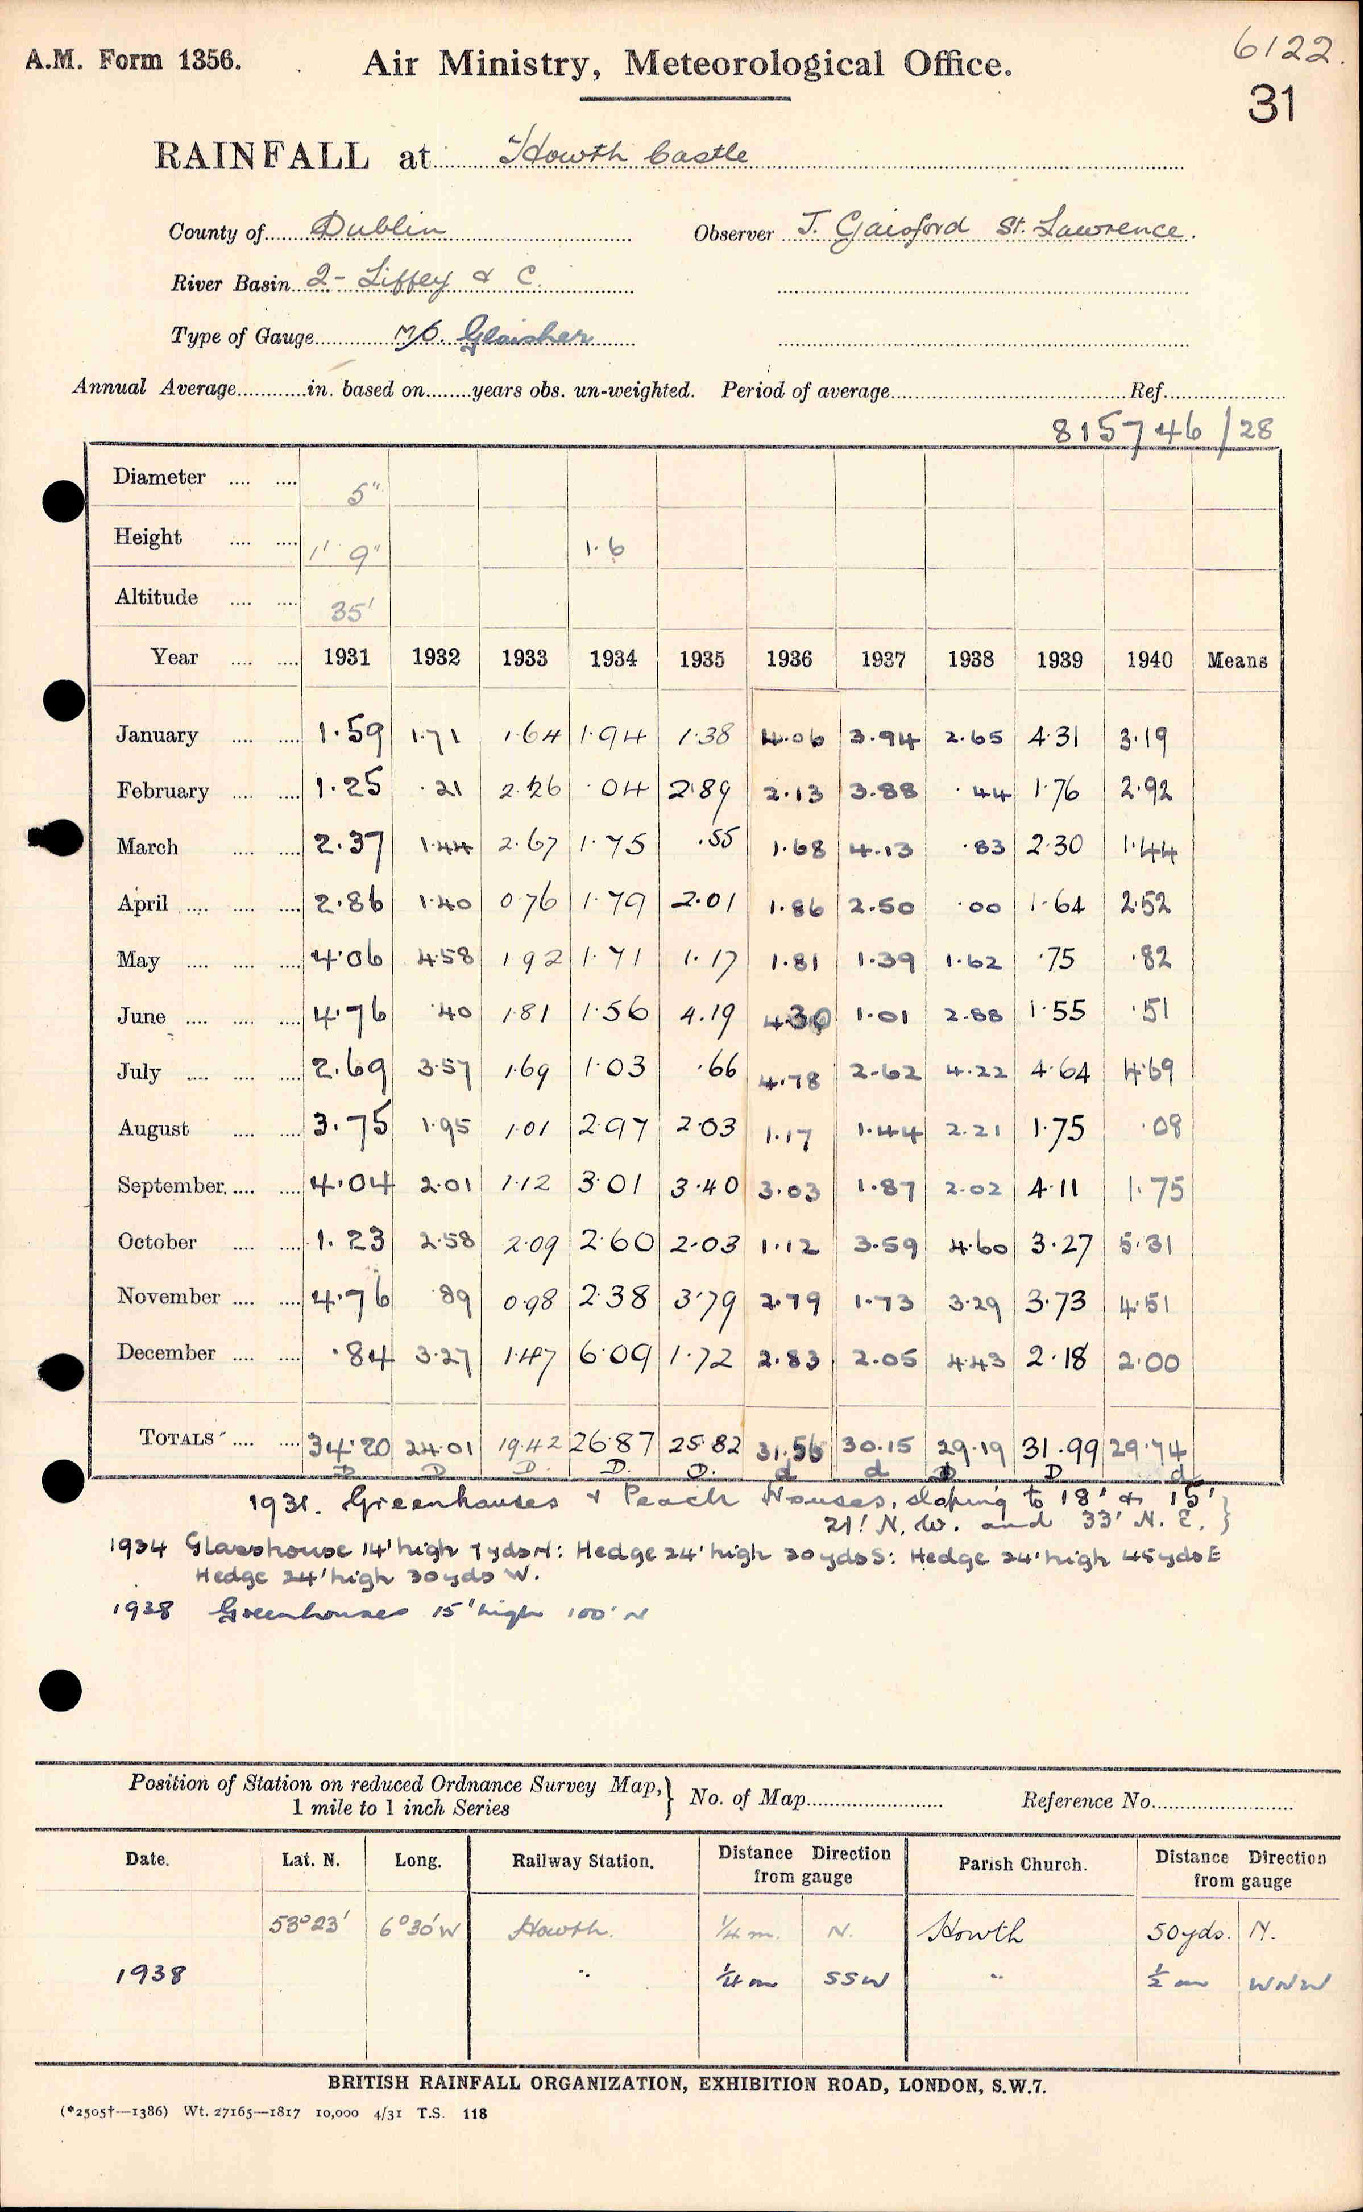 A.M. Form 1356.
Air Ministry, Meteorological Office.
6122.
31
RAINFALL at Howth Castle
County of Dublin Observer J. Gaisford St. Lawrence.
River Basin 2- Liffey & C.
Type of Gauge M/O. Glaisher
Annual Average in. based on years obs. un-weighted. Period of average Ref.
815746/28
Diameter 5"
Height 1' 9" 1.6
Altitude 35'
Year 1931 1932 1933 1934 1935 1936 1937 1938 1939 1940 Means
January 1.59 1.71 1.64 1.94 1.38 4.06 3.94 2.65 4.31 3.19
February 1.25 .21 2.26 .04 2.89 2.13 3.88 .44 1.76 2.92
March 2.37 1.44 2.67 1.75 .55 1.68 4.13 .83 2.30 1.44
April 2.86 1.40 0.76 1.79 2.01 1.86 2.50 .00 1.64 2.52
May 4.06 4.58 1.92 1.71 1.17 1.81 1.39 1.62 .75 .82
June 4.76 .40 1.81 1.56 4.19 4.30 1.01 2.88 1.55 .51
July 2.69 3.57 1.69 1.03 .66 4.78 2.62 4.22 4.64 4.69
August 3.75 1.95 1.01 2.97 2.03 1.17 1.44 2.21 1.75 .08
September 4.04 2.01 1.12 3.01 3.40 3.03 1.87 2.02 4.11 1.75
October 1.23 2.58 2.09 2.60 2.03 1.12 3.59 4.60 3.27 5.31
November 4.76 .89 0.98 2.38 3.79 2.79 1.73 3.29 3.73 4.51
December .84 3.27 1.47 6.09 1.72 2.83 2.05 4.43 2.18 2.00
TOTALS 34.20 24.01 19.42 26.87 25.82 31.56 30.15 29.19 31.99 29.74
D D D. D. D. d d D D d
1931. Greenhouses & Peach Houses, sloping to 18' & 15'
21' N.W. and 33' N.E. }
1934 Glasshouse 14' high 7 yds N: Hedge 24' high 30 yds S: Hedge 24' high 45 yds E
Hedge 24' high 30 yds W.
1938 Greenhouses 15' high 100' N
Position of Station on reduced Ordnance Survey Map, } No. of Map Reference No.
1 mile to 1 inch Series
Date. Lat. N. Long. Railway Station. Distance Direction from gauge Parish Church. Distance Direction from gauge
53°23' 6°30'W Howth. 1/4 m. N. Howth 50 yds. N.
1938 " 1/4 m SSW " 1/2 m WNW
BRITISH RAINFALL ORGANIZATION, EXHIBITION ROAD, LONDON, S.W.7.
(*2505†—1386) Wt. 27165—1817 10,000 4/31 T.S. 118